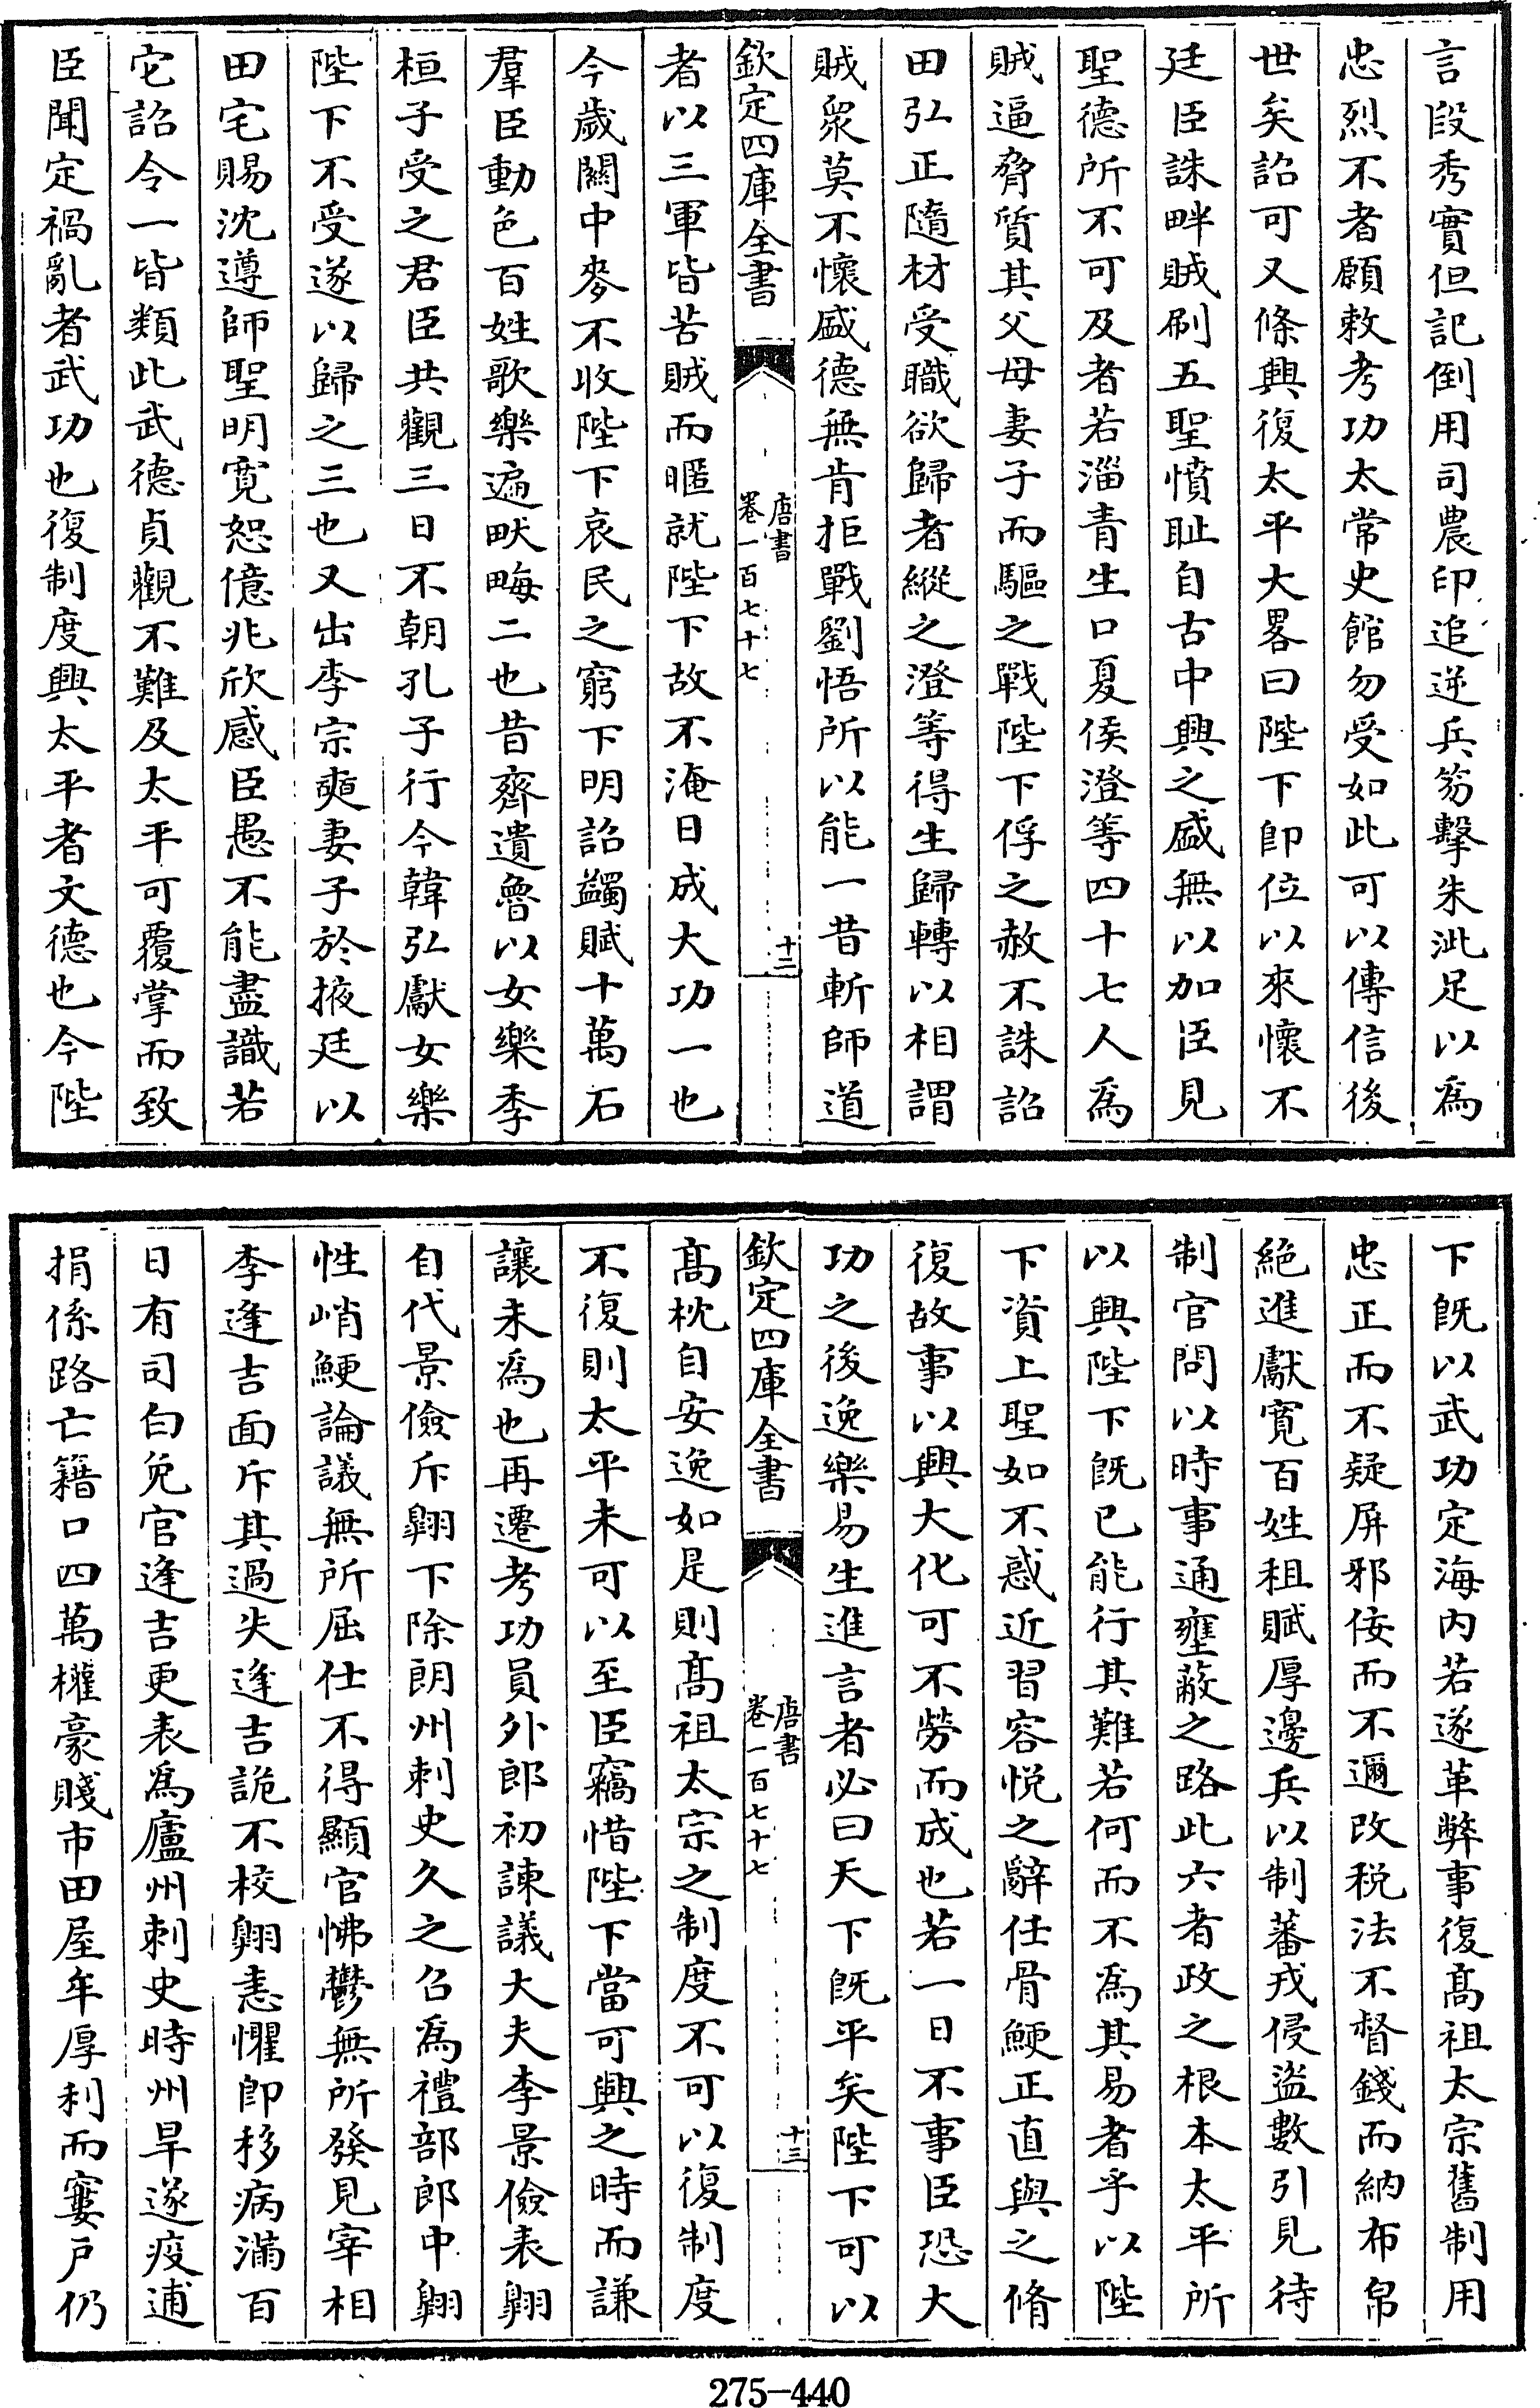 言段秀實但記倒用司農印追逆兵笏擊朱泚足以爲
忠烈不者願敕考功太常史館勿受如此可以傳信後
世矣詔可又條興復太平大畧曰陛下卽位以來懷不
廷臣誅畔賊刷五聖憤恥自古中興之盛無以加臣見
聖德所不可及者若淄青生口夏侯澄等四十七人爲
賊逼脅質其父母妻子而驅之戰陛下俘之赦不誅詔
田弘正隨材受職欲歸者縱之澄等得生歸轉以相謂
賊衆莫不懷盛德無肯拒戰劉悟所以能一昔斬師道
欽定四庫全書
唐書
卷一百七十七
十二
者以三軍皆苦賊而暱就陛下故不淹日成大功一也
今歲關中麥不收陛下哀民之窮下明詔蠲賦十萬石
羣臣動色百姓歌樂遍畎畮二也昔齊遺魯以女樂季
桓子受之君臣共觀三日不朝孔子行今韓弘獻女樂
陛下不受遂以歸之三也又出李宗奭妻子於掖廷以
田宅賜沈遵師聖明寬恕億兆欣感臣愚不能盡識若
它詔令一皆類此武德貞觀不難及太平可覆掌而致
臣聞定禍亂者武功也復制度興太平者文德也今陛
下旣以武功定海內若遂革弊事復高祖太宗舊制用
忠正而不疑屏邪佞而不邇改稅法不督錢而納布帛
絕進獻寬百姓租賦厚邊兵以制蕃戎侵盜數引見待
制官問以時事通壅蔽之路此六者政之根本太平所
以興陛下旣已能行其難若何而不爲其易者乎以陛
下資上聖如不惑近習容悅之辭任骨鯁正直與之脩
復故事以興大化可不勞而成也若一日不事臣恐大
功之後逸樂易生進言者必曰天下旣平矣陛下可以
欽定四庫全書
唐書
卷一百七十七
十三
高枕自安逸如是則高祖太宗之制度不可以復制度
不復則太平未可以至臣竊惜陛下當可興之時而謙
讓未爲也再遷考功員外郎初諫議大夫李景儉表翺
自代景儉斥翺下除朗州刺史久之召爲禮部郎中翺
性峭鯁論議無所屈仕不得顯官怫鬱無所發見宰相
李逢吉面斥其過失逢吉詭不校翺恚懼卽移病滿百
日有司白免官逢吉更表爲廬州刺史時州旱遂疫逋
捐係路亡籍口四萬權豪賤市田屋牟厚利而窶戶仍
275-440